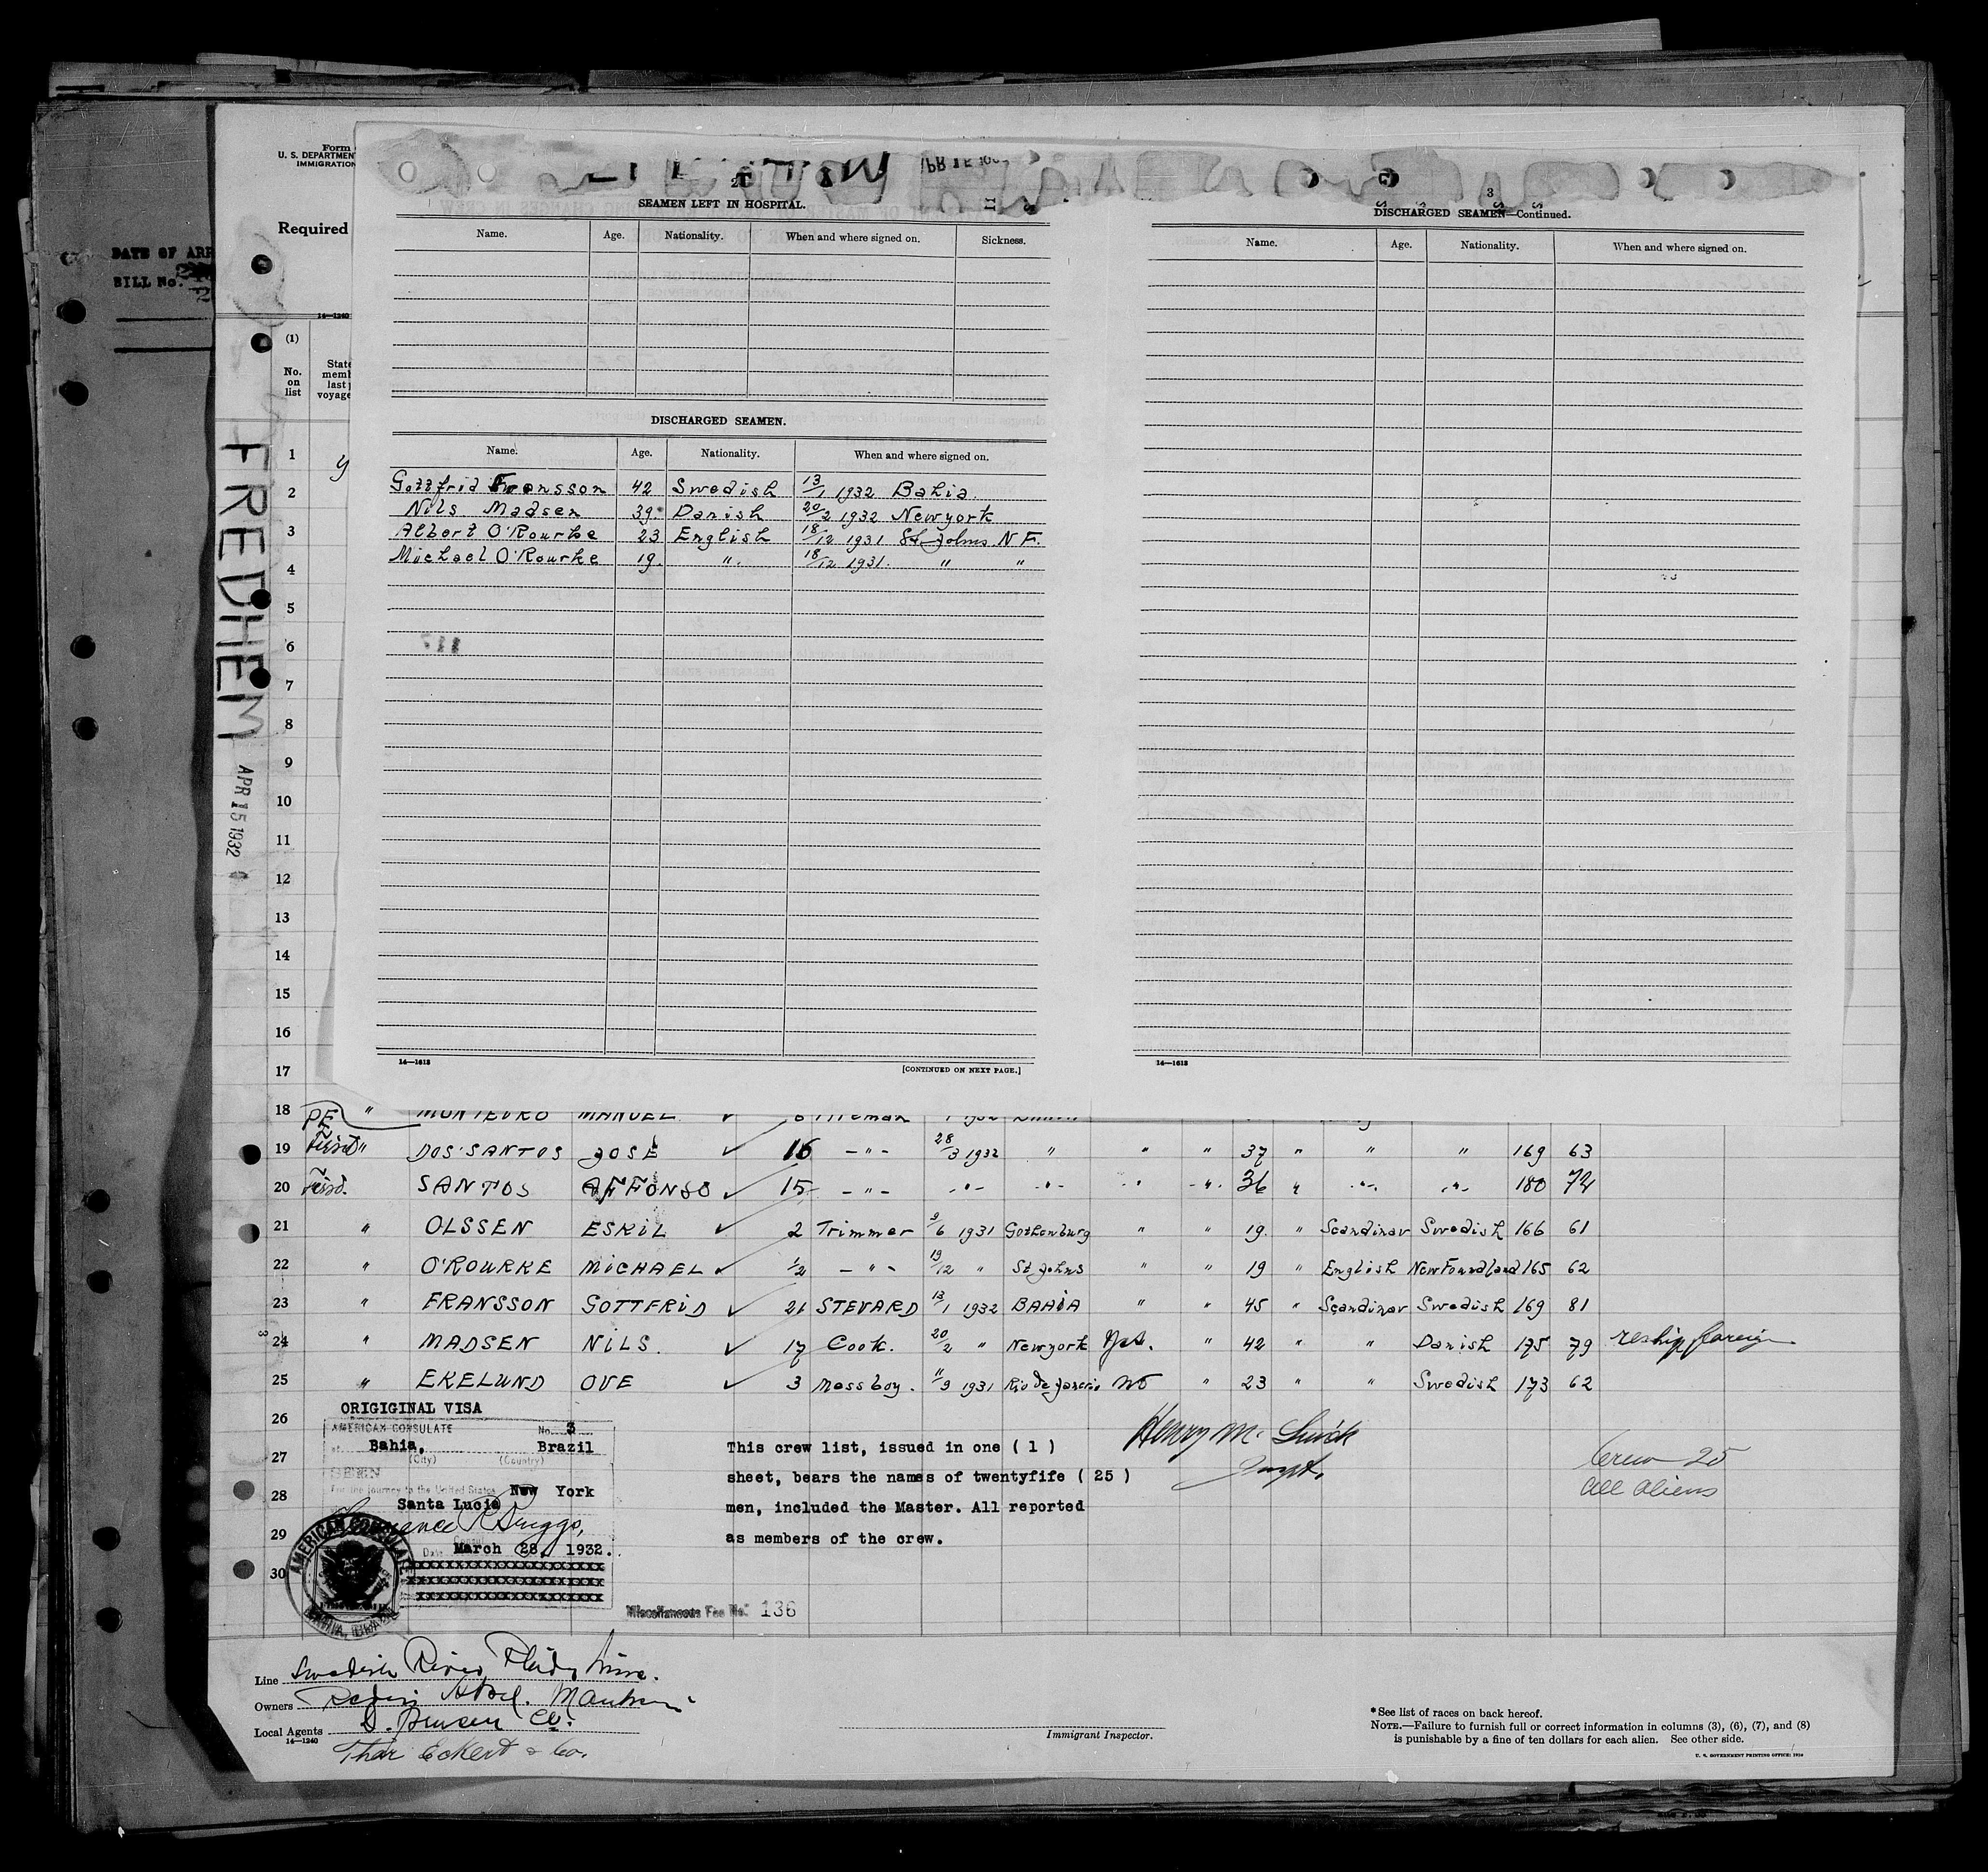 DATE OF ARR
BILL No.
Form
U. S. DEPARTMENT
IMMIGRATION
Required
14—1240
(1)
No. on list
State
memb
last
voyage
FREDHEM
APR 15 1932
2
SEAMEN LEFT IN HOSPITAL.
Name. Age. Nationality. When and where signed on. Sickness.
DISCHARGED SEAMEN.
Name. Age. Nationality. When and where signed on.
Gottfrid Fransson 42 Swedish 13/1 1932 Bahia.
Nils Madsen 39. Danish 20/2 1932 Newyork
Albert O'Rourke 23 English 18/12 1931 St. Johns N F.
Michael O'Rourke 19. ". 18/12 1931. " "
14—1613
[CONTINUED ON NEXT PAGE.]
3
DISCHARGED SEAMEN—Continued.
Name. Age. Nationality. When and where signed on.
14—1613
1
2
3
4
5
6
7
8
9
10
11
12
13
14
15
16
17
18 " MONTEURO MANUEL
19 " DOS'SANTOS JOSE ✓ 16 -"- 28/3 1932 " " " 37 " " " 169 63
20 SANTOS AFFONSO ✓ 15 -"- -"- -"- " -". 36 " -"- -"- 180 74
21 " OLSSEN ESKIL ✓ 2 Trimmer 9/6 1931 Gothenburg " " 19. " Scandinav Swedish 166 61
22 " O'ROURKE MICHAEL ✓ 1/2 -"- 19/12 " St Johns " " 19 " English NewFoundland 165 62
23 " FRANSSON GOTTFRID ✓ 21 STEVARD 13/1 1932 BAHIA " " 45 " Scandinav Swedish 169 81
24 " MADSEN NILS. ✓ 17 Cook. 20/2 " Newyork Yes. " 42 " " Danish 175 79 reship foreign
25 " EKELUND OVE ✓ 3 Messboy. 11/9 1931 Rio de Janerio No " 23 " " Swedish 173 62
26
27
28
29
30
ORIGIGINAL VISA
AMERICAN CONSULATE No. 3
at Bahia, Brazil
(City) (Country)
SEEN
For the journey to the United States New York
Santa Lucia
March 28, 1932.
xxxxxxxxxxxxxxxxxxxxxxx
xxxxxxxxxxxxxxxxxxxxxxxx
xxxxxxxxxxxxxxxxxxxxxxx
AMERICAN CONSULATE
BAHIA, BRAZIL
Miscellaneous Fee No. 136
This crew list, issued in one ( 1 )
sheet, bears the names of twentyfife ( 25 )
men, included the Master. All reported
as members of the crew.
Henry Mc
Inspt.
Crew 25
all aliens
Line Swedish River Line.
Owners
Local Agents
14—1240
Thor Eckert & Co.
Immigrant Inspector.
* See list of races on back hereof.
NOTE.—Failure to furnish full or correct information in columns (3), (6), (7), and (8)
is punishable by a fine of ten dollars for each alien. See other side.
U. S. GOVERNMENT PRINTING OFFICE: